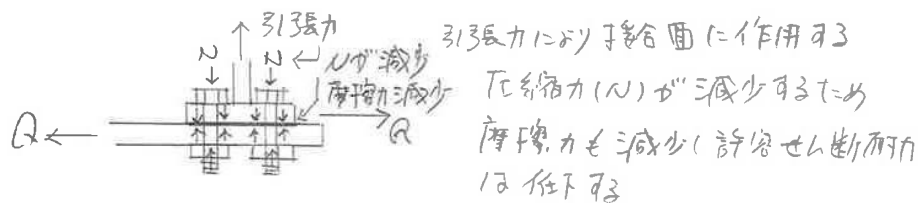 引張力
N N Nが減少
摩擦力減少
Q Q
引張力により接合面に作用する
圧縮力(N)が減少するため
摩擦力も減少し許容せん断耐力
は低下する